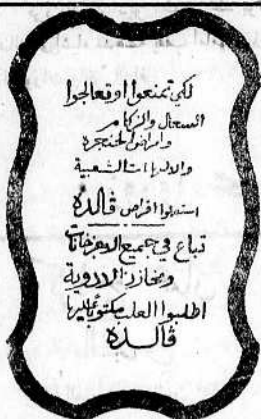 لكي تمنعوا او تعالجوا
السعال والزكام
وامراض الحنجرة
والالتهابات الشعبية
استعملوا اقراص ڤالدا
تباع في جميع الاجزاخانات
ومخازن الادوية
اطلبوا العلب مكتوبا عليها
ڤالدا